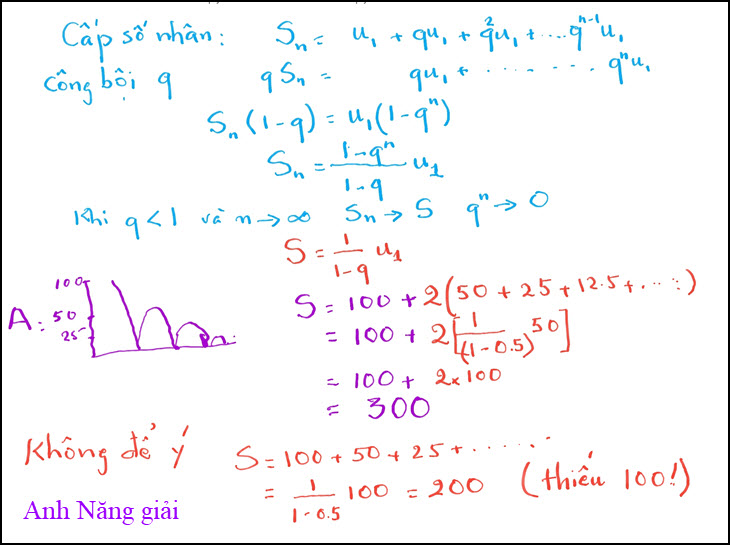 Cấp số nhân: Sₙ = u₁ + qu₁ + q²u₁ + .... qⁿ⁻¹u₁
công bội q qSₙ = qu₁ + - - - - - - qⁿu₁
Sₙ(1-q) = u₁(1-qⁿ)
Sₙ = (1-qⁿ)/(1-q) u₁
Khi q < 1 và n → ∞ Sₙ → S qⁿ → 0
S = 1/(1-q) u₁
A: 100 50 25
S = 100 + 2(50 + 25 + 12.5 + ....)
= 100 + 2[1/(1-0.5) 50]
= 100 + 2x100
= 300
Không để ý S = 100 + 50 + 25 + ......
= 1/(1-0.5) 100 = 200 (thiếu 100!)
Anh Năng giải